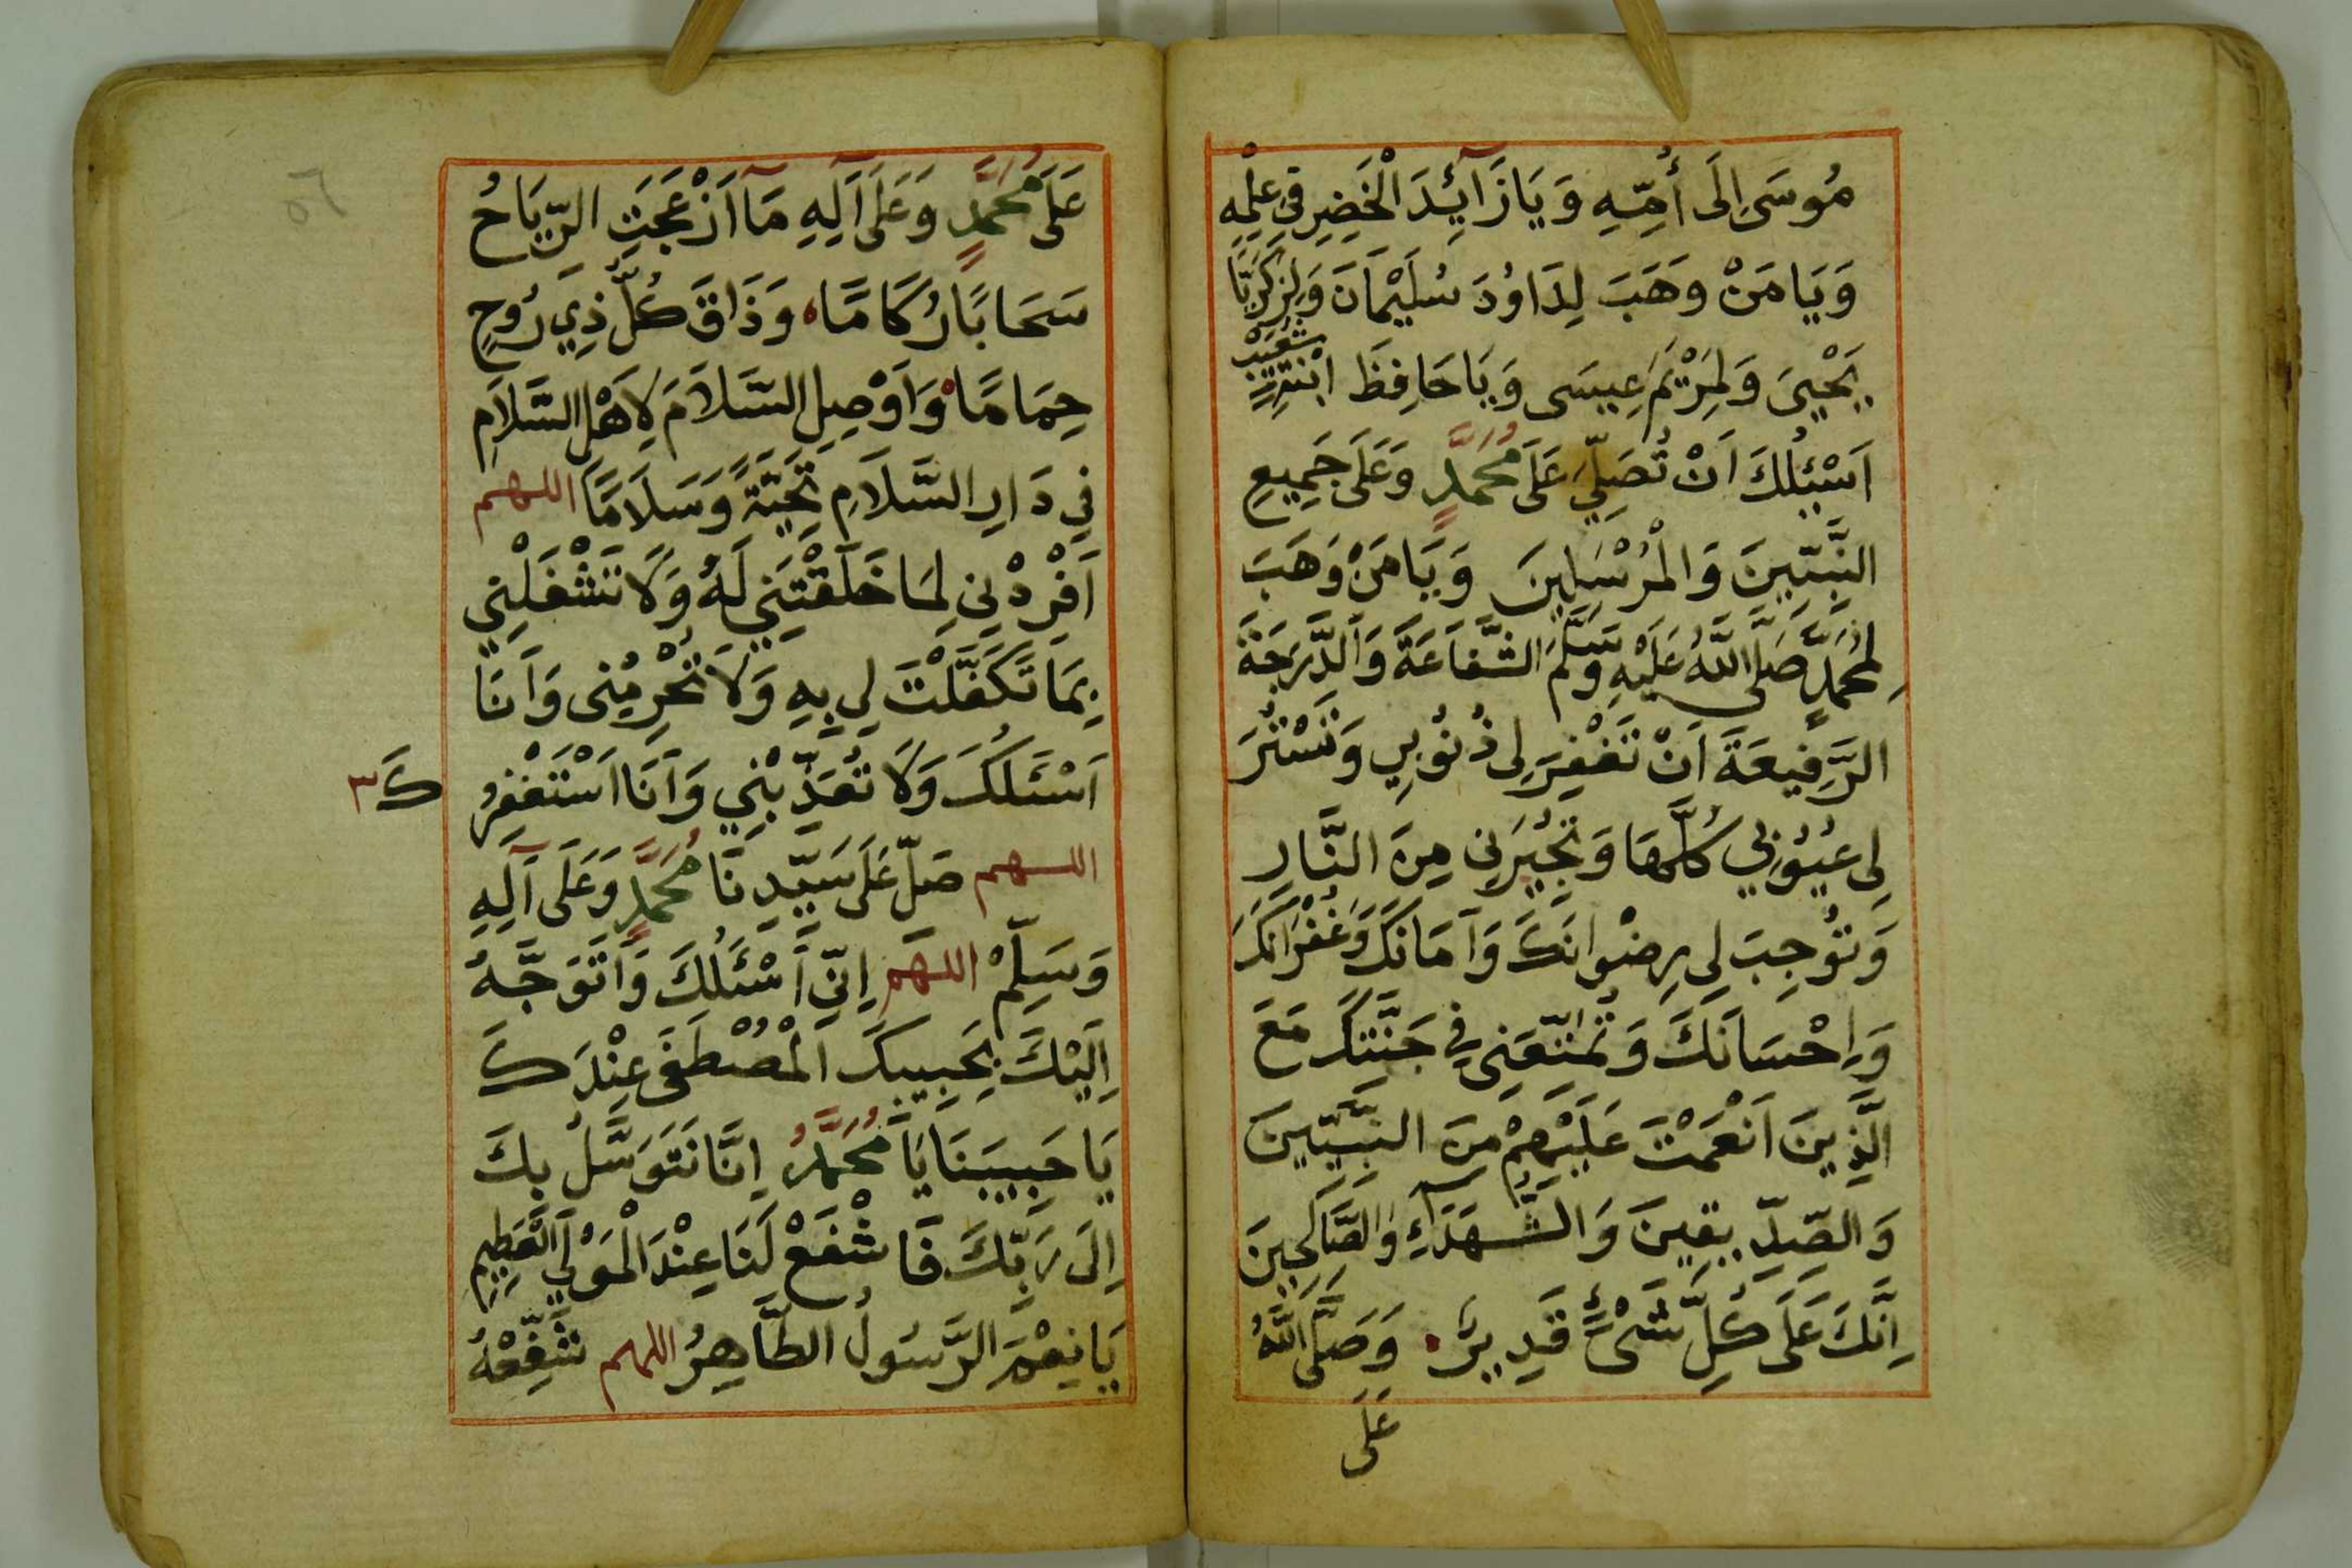 مُوسَى اِلَى أُمِّهِ وَيَا زَآئِدَ الْخَضِرِ فِي عِلْمِهِ
وَيَا مَنْ وَهَبَ لِدَاوُدَ سُلَيْمَانَ وَلِزَكَرِيَّا
يَحْيىَ وَلِمَرْيَمَ عِيسَى وَيَا حَافِظَ ابْنَةِ شُعَيْبٍ
اَسْئَلُكَ اَنْ تُصَلِّيَ عَلَى مُحَمَّدٍ وَعَلَى جَمِيعِ
النَّبِيّينَ وَالْمُرْسَلِينَ وَيَا مَنْ وَهَبَ
لِمُحَمَّدٍ صَلَّى اللَّهُ عَلَيْهِ وَسَلَّمَ الشَّفَاعَةَ وَالدَّرَجَةَ
الرَّفِيعَةَ اَنْ تَغْفِرَ لِى ذُنُوبِي وَتَسْتُرَ
لِى عُيُوبِي كُلَّهَا وَتُجِيرَنِى مِنَ النَّارِ
وَتُوجِبَ لِى رِضْوانَكَ وَآمَانَكَ وَغُفْرَانَكَ
وَاِحْسَانَكَ وَتُمَتِّعَنِى فِي جَنَّتِكَ مَعَ
الَّذِينَ اَنْعَمْتَ عَلَيْهِمْ مِنَ النَّبِيّينَ
وَالصِّدِّيقِينَ وَالشُّهَدَآءِ وَالصَّالِحِينَ
اِنَّكَ عَلَى كُلِّ شَىْءٍ قَدِيرٌ وَصَلَّى اللَّهُ
عَلَى
٥٦
عَلَى مُحَمَّدٍ وَعَلَى آلِهِ مَآ اَزْعَجَتِ الرِّيَاحُ
سَحَابًا رُكَامًا وَذَاقَ كُلُّ ذِي رُوحٍ
حِمَامًا وَاَوْصِلِ السَّلَامَ لِاَهْلِ السَّلَامِ
فِي دَارِ السَّلَامِ تَحِيَّةً وَسَلَامًا اللهم
اَفْرِدْنِى لِمَا خَلَقْتَنِي لَهُ وَلَا تَشْغَلْنِي
بِمَا تَكَفَّلْتَ لِي بِهِ وَلَا تَحْرِمْنِى وَاَنَا
اَسْئَلُكَ وَلَا تُعَذِّبْنِي وَاَنَا اَسْتَغْفِرُ
كَ ٣
اللهم صَلِّ عَلَى سَيِّدِنَا مُحَمَّدٍ وَعَلَى آلِهِ
وَسَلِّمْ اللهم اِنِّى أَسْئَلُكَ وَاَتَوَجَّهُ
اِلَيْكَ بِحَبِيبِكَ الْمُصْطَفَى عِنْدَكَ
يَا حَبِيبَنَا يَا مُحَمَّدُ اِنَّا نَتَوَسَّلُ بِكَ
اِلَى رَبِّكَ فَاشْفَعْ لَنَا عِنْدَ الْمَوْلَى الْعَظِيمِ
يَا نِعْمَ الرَّسُولُ الطَّاهِرُ اللهم شَفِّعْهُ